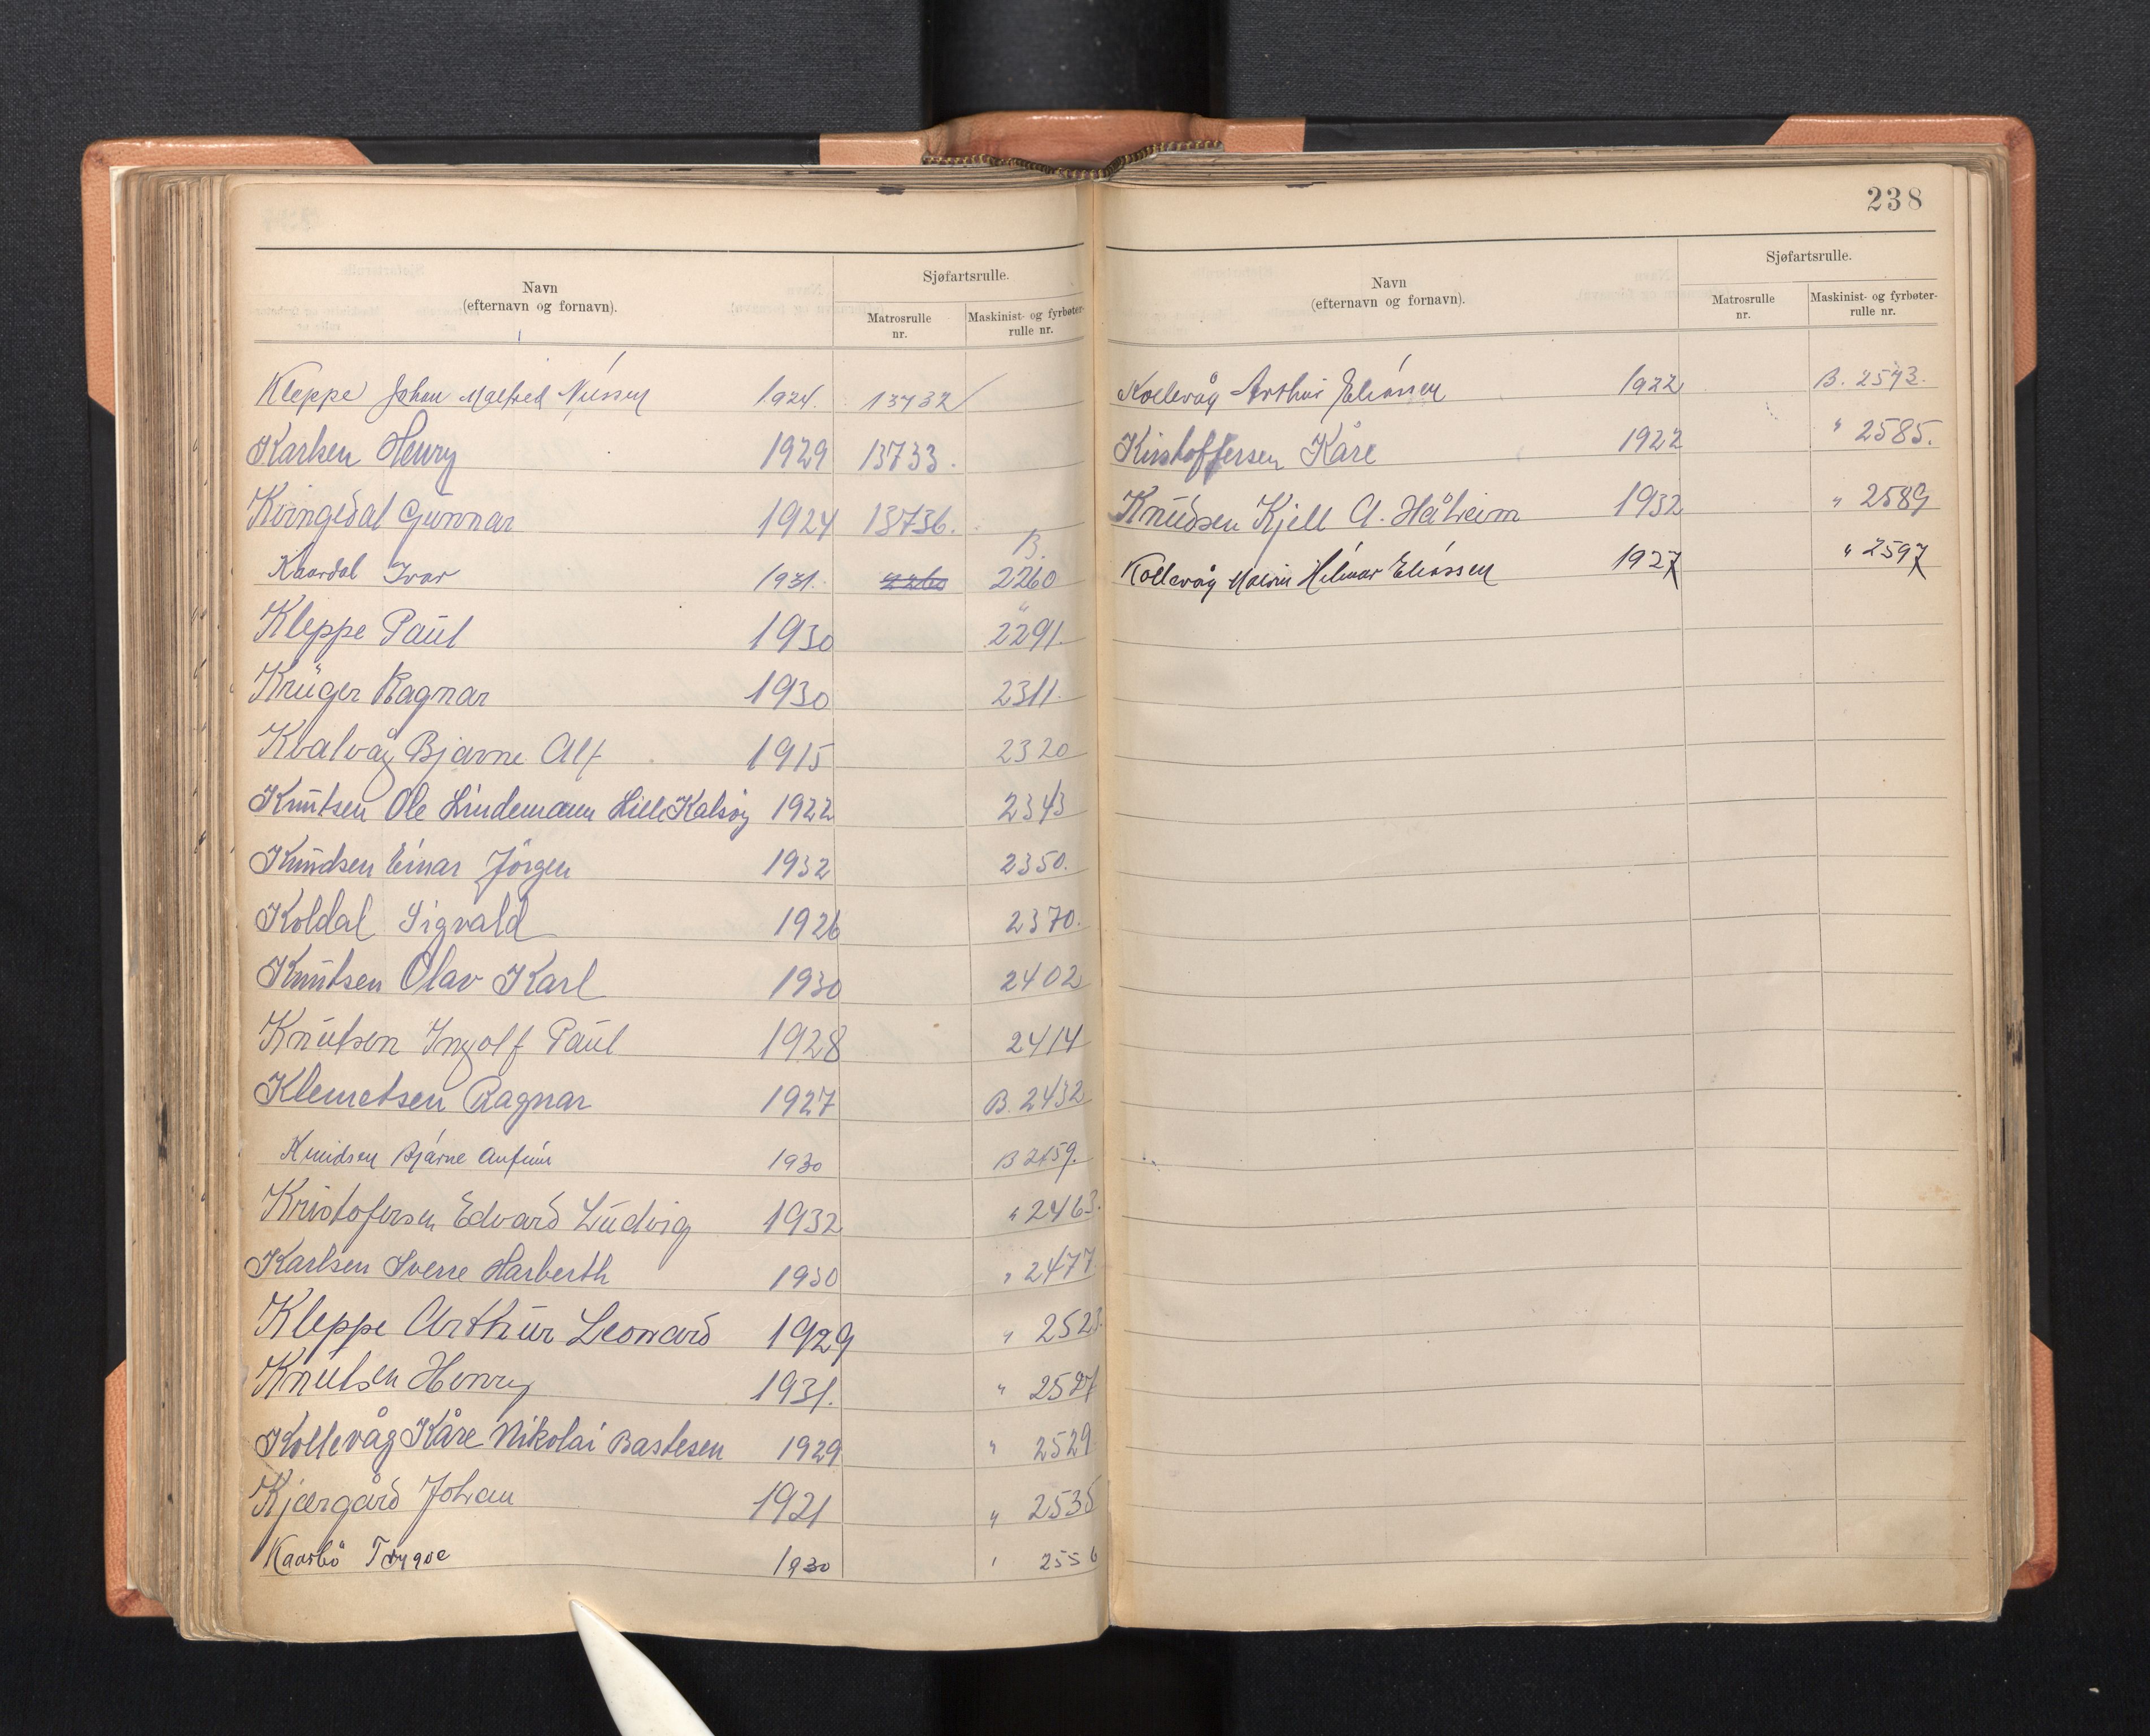 Navn
(efternavn og fornavn).
Sjøfartsrulle.
Matrosrulle
nr.
Maskinist- og fyrbøter-
rulle nr.
Kleppe Johan Malfred Nilssen 1924. 13732
Karlsen Henry 1929 13733.
Kvingedal Gunnar 1924 13736.
Kaardal Ivar 1931. 2260 B. 2260
Kleppe Paul 1930 " 2291.
Krüger Ragnar 1930 2311.
Kvalvåg Bjarne Alf 1915 2320
Knutsen Ole Lindemann Lille Kalsøy 1922 2343
Knudsen Einar Jörgen 1932 2350.
Koldal Sigvald 1926 2370.
Knutsen Olav Karl 1930 2402
Knutsen Ingolf Paul 1928 2414
Klemetsen Ragnar 1927 B. 2432
Knudsen Bjarne Anfinn 1930 B 2459.
Kristofersen Edvard Ludvig 1932 " 2463.
Karlsen Sverre Harberth 1930 " 2477.
Kleppe Arthur Leonard 1929 " 2523.
Knutsen Henry 1931. " 2527
Kollevåg Kåre Nikolai Bastesen 1929 " 2529
Kjærgård Johan 1921 " 2535
Kaarbö Trygve 1930 " 2556
238
Navn
(efternavn og fornavn).
Sjøfartsrulle.
Matrosrulle
nr.
Maskinist- og fyrbøter-
rulle nr.
Kollevåg Arthur Eliassen 1922 B. 2573.
Kristoffersen Kåre 1922 " 2585.
Knudsen Kjell A. Håheim 1932 " 2589
Kollevåg Malvin Hilmar Eliassen 1927 " 2597